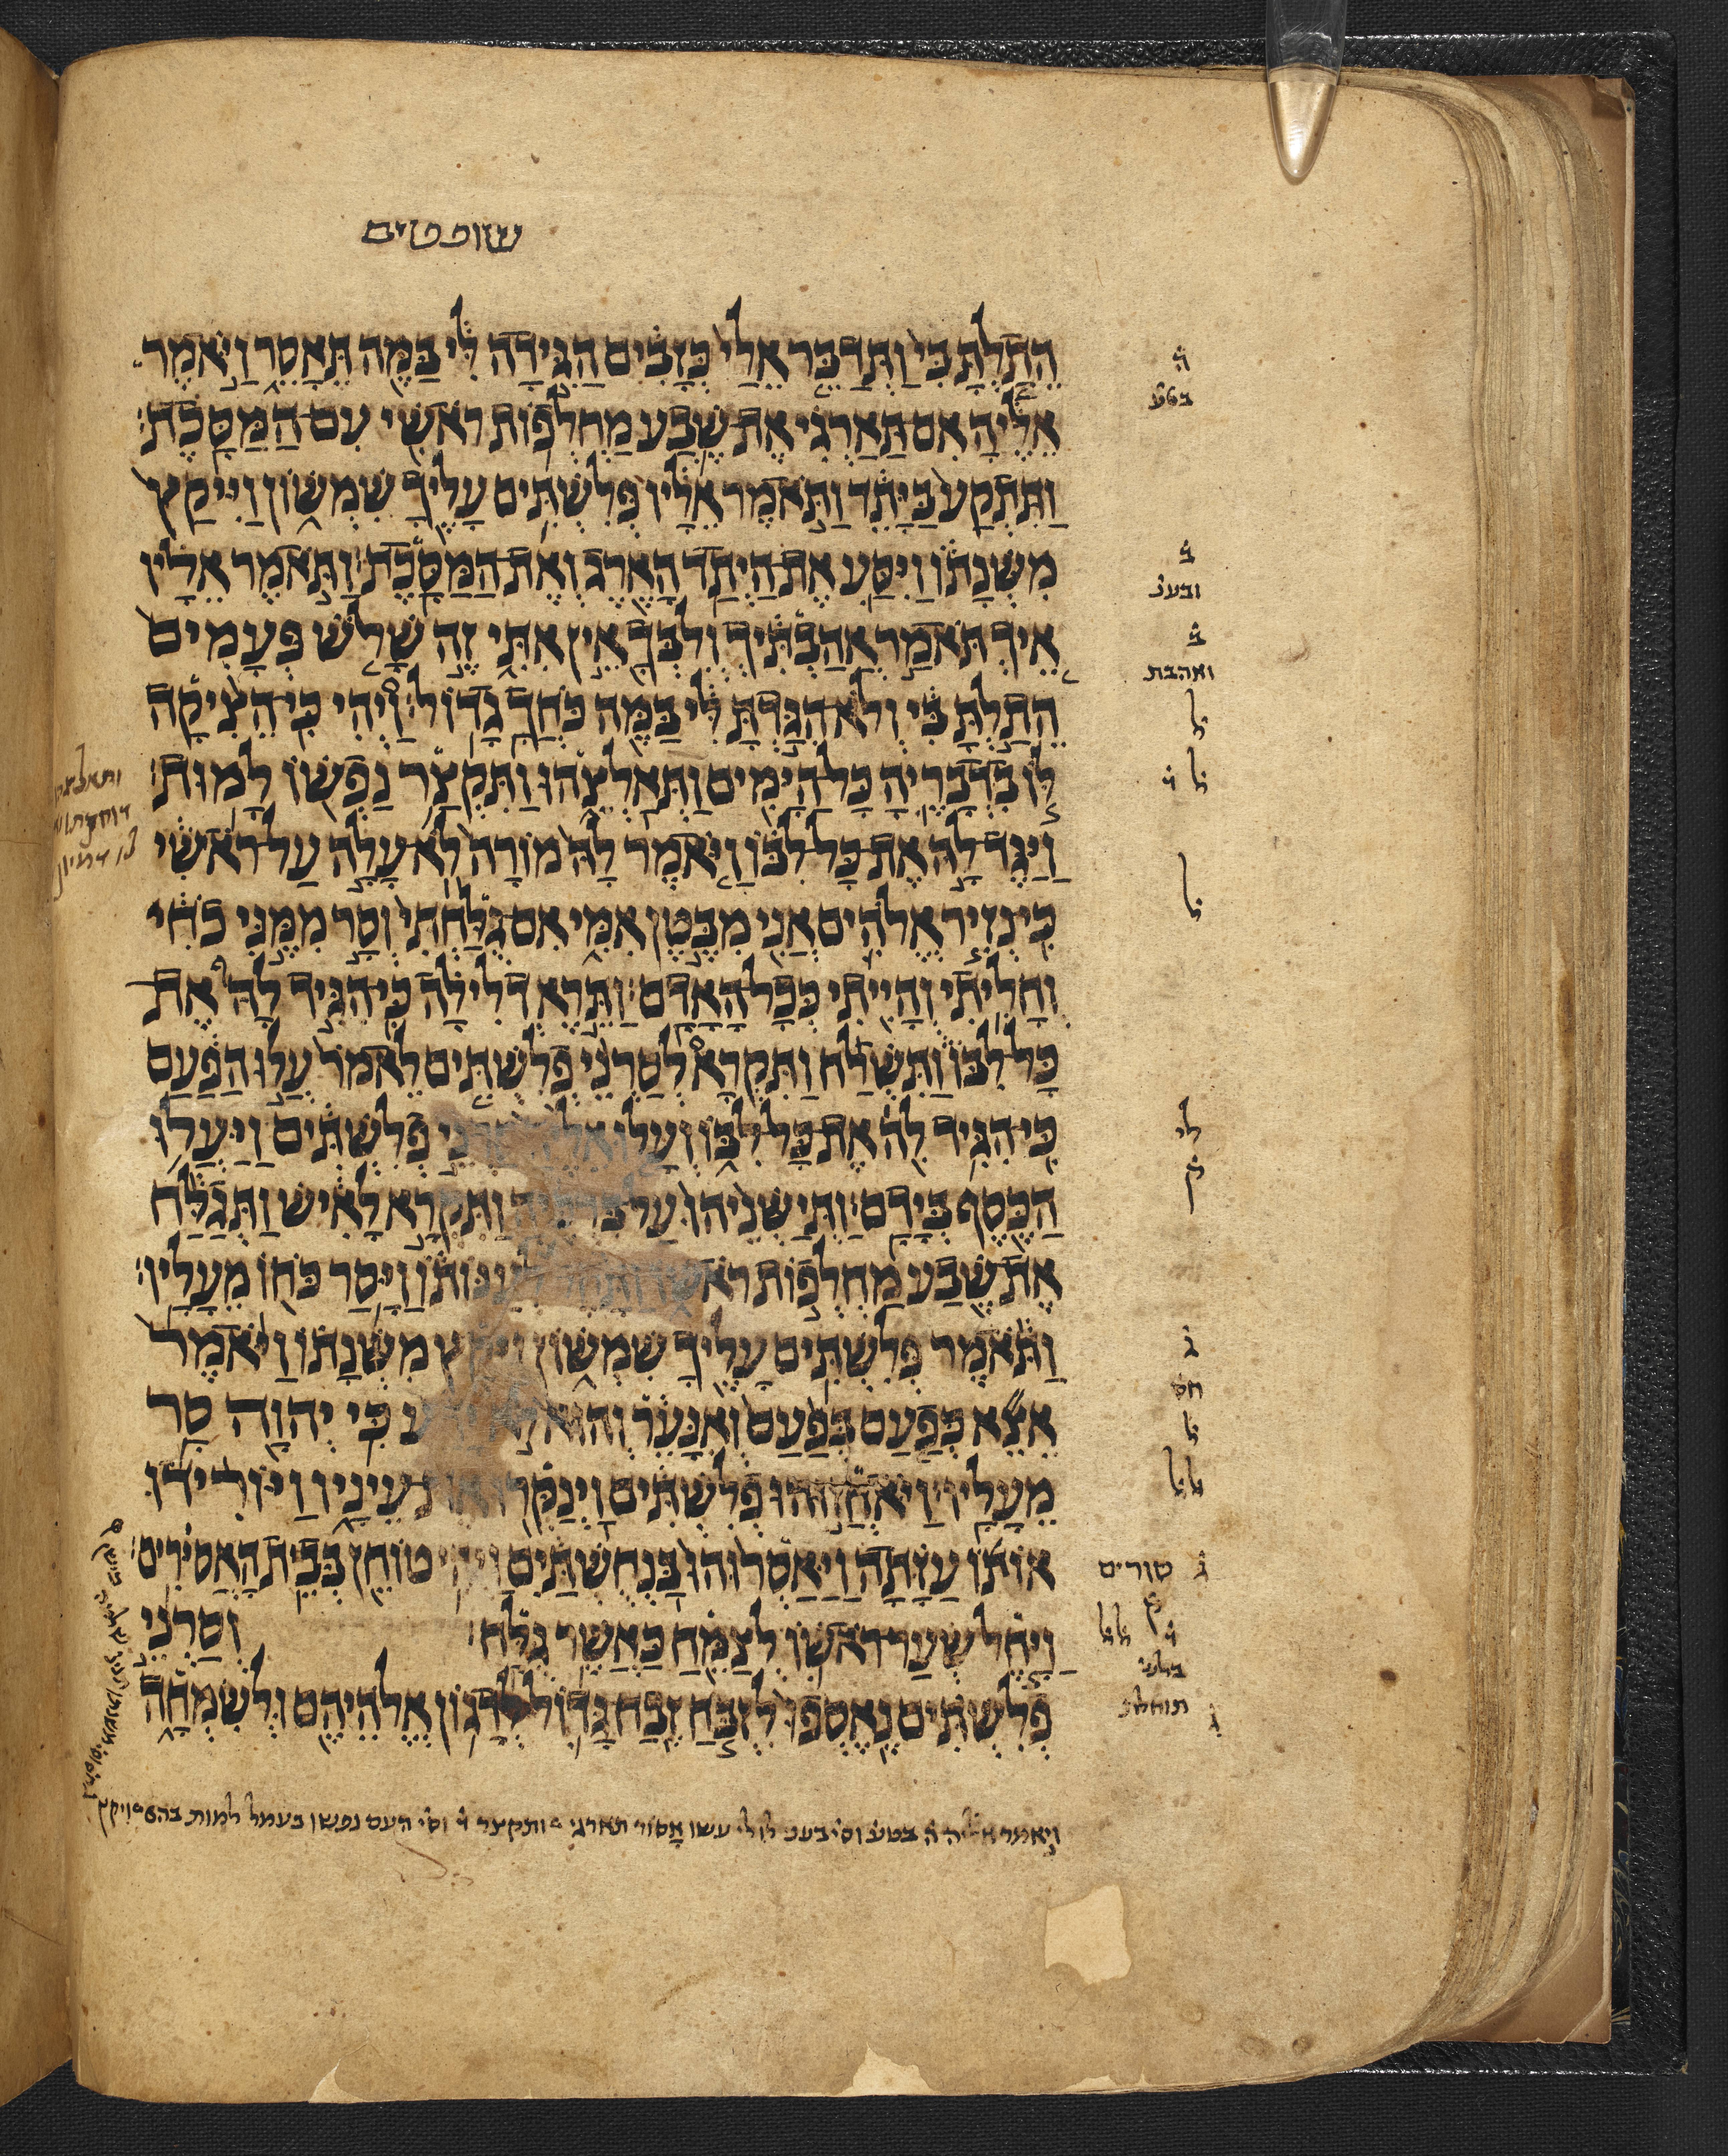 שופטים
הֵתַלְתָּ בִּי וַתְּדַבֵּר אֵלַי כְּזָבִים הַגִּידָה לִּי בַּמֶּה תֵּאָסֵר וַיֹּאמֶר
אֵלֶיהָ אִם תַּאַרְגִי אֶת שֶׁבַע מַחְלְפוֹת רֹאשִׁי עִם הַמַּסָּכֶת׃
וַתִּתְקַע בַּיָּתֵד וַתֹּאמֶר אֵלָיו פְּלִשְׁתִּים עָלֶיךָ שִׁמְשׁוֹן וַיִּיקַץ
מִשְּׁנָתוֹ וַיִּסַּע אֶת הַיְתַד הָאֶרֶג וְאֶת הַמַּסָּכֶת׃ וַתֹּאמֶר אֵלָיו
אֵיךְ תֹּאמַר אֲהַבְתִּיךְ וְלִבְּךָ אֵין אִתִּי זֶה שָׁלֹשׁ פְּעָמִים
הֵתַלְתָּ בִּי וְלֹא הִגַּדְתָּ לִּי בַּמֶּה כֹּחֲךָ גָדוֹל׃ וַיְהִי כִּי הֵצִיקָה
לּוֹ בִדְבָרֶיהָ כָּל הַיָּמִים וַתְּאַלְצֵהוּ וַתִּקְצַר נַפְשׁוֹ לָמוּת׃
וַיַּגֶּד לָהּ אֶת כָּל לִבּוֹ וַיֹּאמֶר לָהּ מוֹרָה לֹא עָלָה עַל רֹאשִׁי
כִּי נְזִיר אֱלֹהִים אֲנִי מִבֶּטֶן אִמִּי אִם גֻּלַּחְתִּי וְסָר מִמֶּנִּי כֹחִי
וְחָלִיתִי וְהָיִיתִי כְּכָל הָאָדָם׃ וַתֵּרֶא דְלִילָה כִּי הִגִּיד לָהּ אֶת
כָּל לִבּוֹ וַתִּשְׁלַח וַתִּקְרָא לְסַרְנֵי פְלִשְׁתִּים לֵאמֹר עֲלוּ הַפַּעַם
כִּי הִגִּיד לָהּ אֶת כָּל לִבּוֹ וְעָלוּ אֵלֶיהָ סַרְנֵי פְלִשְׁתִּים וַיַּעֲלוּ
הַכֶּסֶף בְּיָדָם׃ וַתְּיַשְּׁנֵהוּ עַל בִּרְכֶּיהָ וַתִּקְרָא לָאִישׁ וַתְּגַלַּח
אֶת שֶׁבַע מַחְלְפוֹת רֹאשׁוֹ וַתָּחֶל לְעַנּוֹתוֹ וַיָּסַר כֹּחוֹ מֵעָלָיו׃
וַתֹּאמֶר פְּלִשְׁתִּים עָלֶיךָ שִׁמְשׁוֹן וַיִּקַץ מִשְּׁנָתוֹ וַיֹּאמֶר
אֵצֵא כְּפַעַם בְּפַעַם וְאִנָּעֵר וְהוּא לֹא יָדַע כִּי יְהוָה סָר
מֵעָלָיו׃ וַיֹּאחֲזוּהוּ פְלִשְׁתִּים וַיְנַקְּרוּ אֶת עֵינָיו וַיּוֹרִידוּ
אוֹתוֹ עַזָּתָה וַיַּאַסְרוּהוּ בַּנְחֻשְׁתַּיִם וַיְהִי טוֹחֵן בְּבֵית הָאֲסִירִים׃
וַיָּחֶל שְׂעַר רֹאשׁוֹ לְצַמֵּחַ כַּאֲשֶׁר גֻּלָּח׃ וְסַרְנֵי
פְלִשְׁתִּים נֶאֶסְפוּ לִזְבֹּחַ זֶבַח גָּדוֹל לְדָגוֹן אֱלֹהֵיהֶם וּלְשִׂמְחָה
ה
בטע
ב
ובענ
ב
ואהבת
ל
ל ו
ל
לי
ק
ג
חס
ל
ל ל
ג סורים
תוחלת
ויאמר אליה ה בטע וסי בענ לולי עשו אסור תארגי ותקצר ו וסי העם נפשו בעמל למות בהם ויקץ